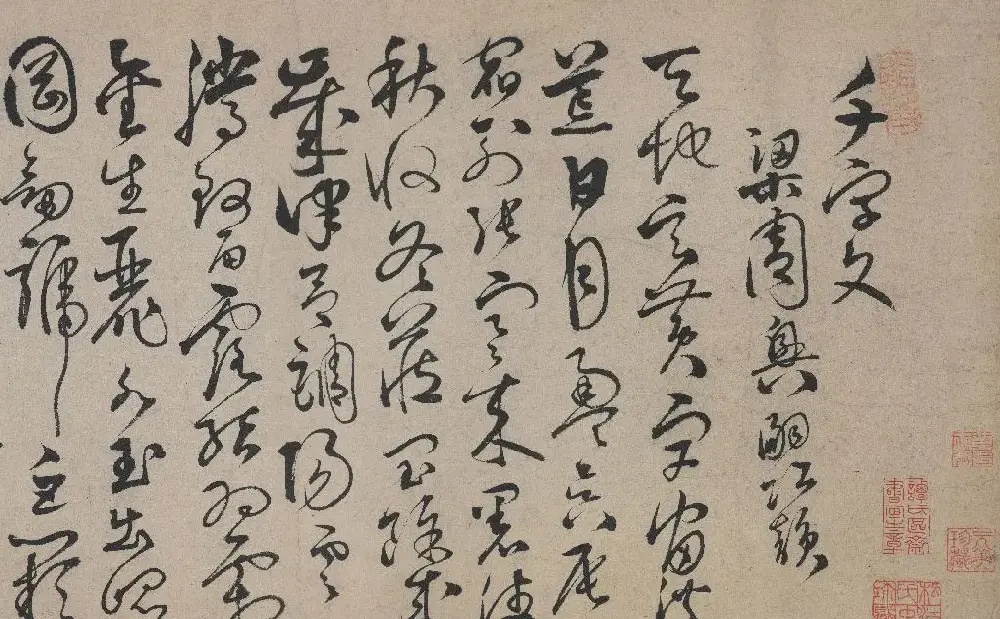 千字文
梁周興嗣次韻
天地玄黃宇宙洪
荒日月盈昃辰
宿列張寒來暑往
秋收冬藏閏餘成
歲律呂調陽雲
騰致雨露結為霜
金生麗水玉出崐
岡劍號巨闕